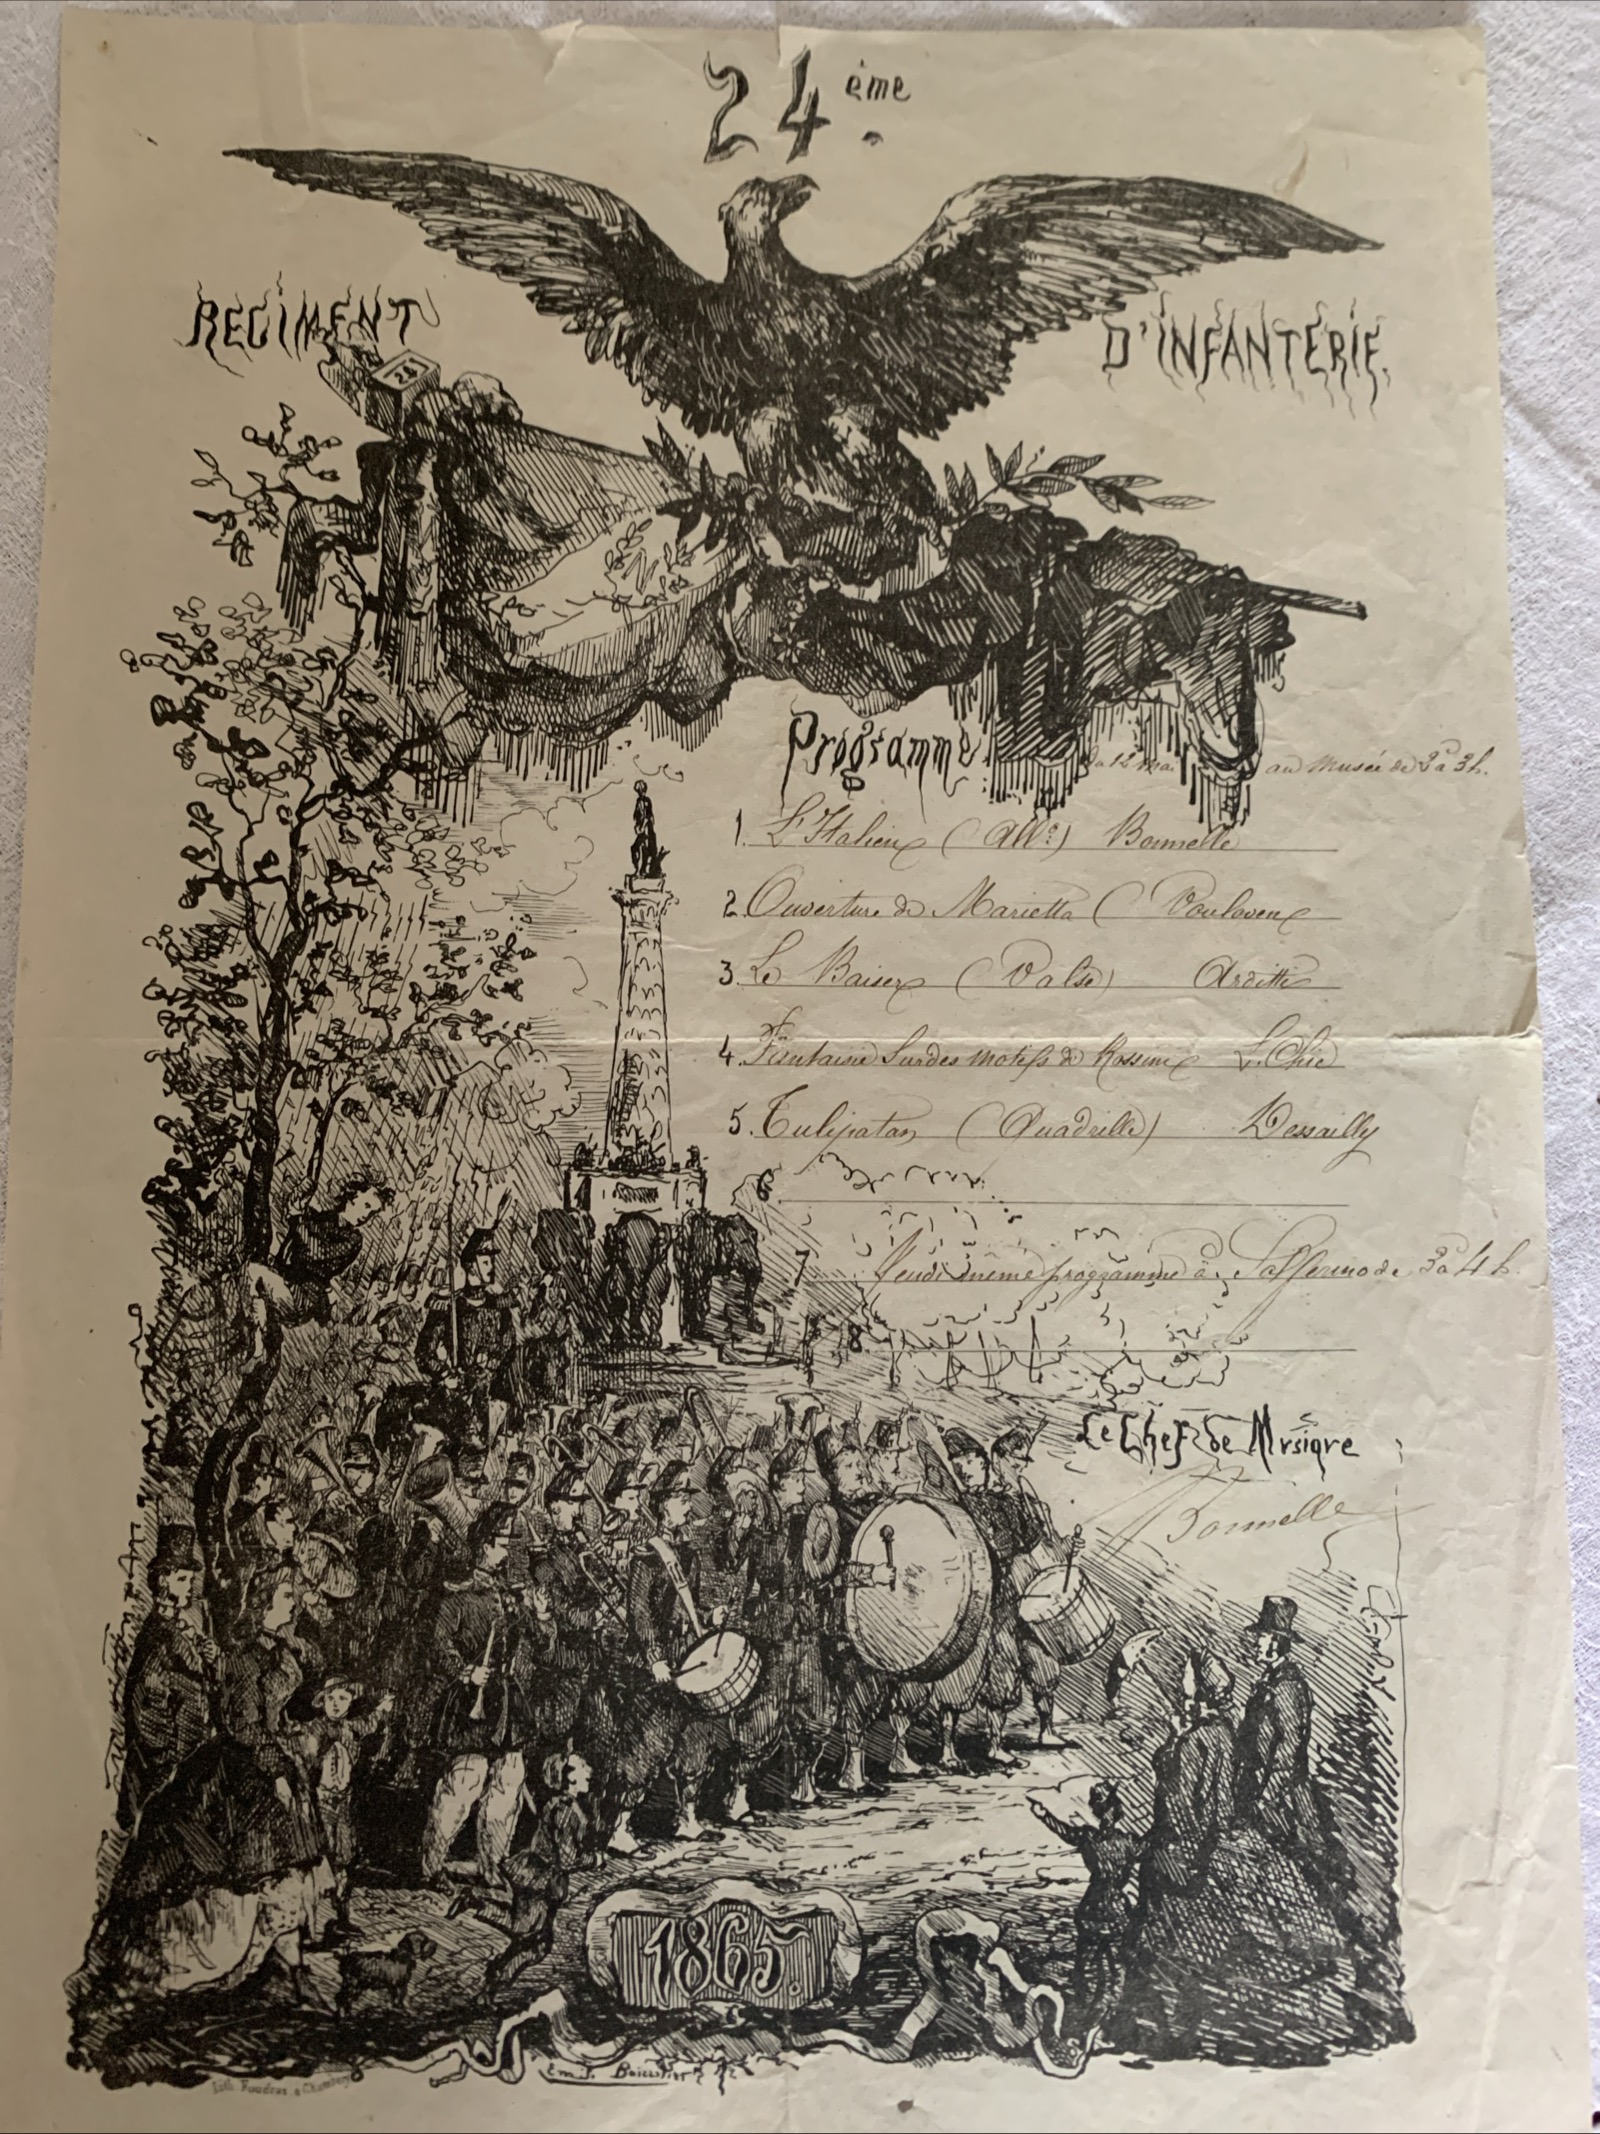 24 ème
REGIMENT D'INFANTERIE.
24
Programme du 12 mai au Musée de 2 à 3 h.
1. L'Italien (All°) Bonnelle
2. Ouverture de Marietta (
3. Le Baiser (Valse) Arditti
4. Fantaisie Sur des motifs de Rossini L. Chic
5. Tulipatan (Quadrille) Dessailly
6
7 Jeudi même programme à Solferino de 3 à 4 h.
8.
Le Chef de Mvsiqve
Bonnelle
1865.
Em. J.
Lith. Foudras, à Chambéry